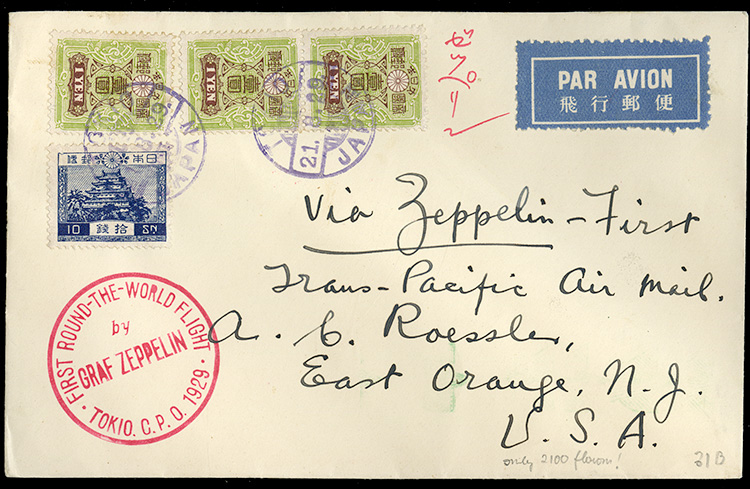 1 YEN
1 YEN
1 YEN
ゼツペリン
PAR AVION
飛行郵便
JAPAN
21.8.29
JAPAN
10 錢拾 SN
Via Zeppelin - First
Trans-Pacific Air Mail.
A. C. Roessler,
East Orange, N. J.
U. S. A.
FIRST ROUND-THE-WORLD FLIGHT
by
GRAF ZEPPELIN
· TOKIO. C. P. O. 1929 ·
only 2100 flown!
31B